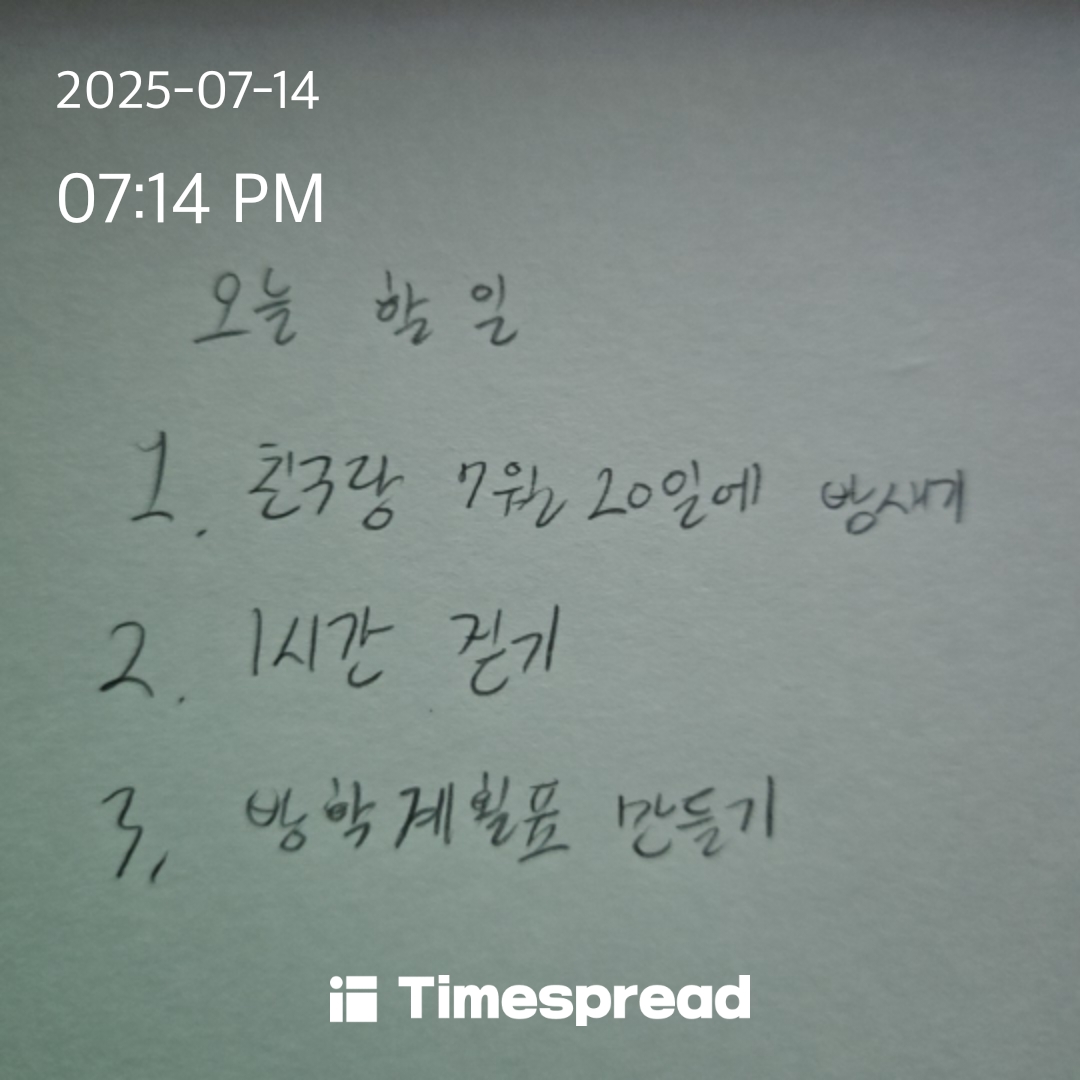 2025-07-14
07:14 PM
오늘 할 일
1. 친구랑 7월 20일에 밤새기
2. 1시간 걷기
3, 방학계획표 만들기
Timespread